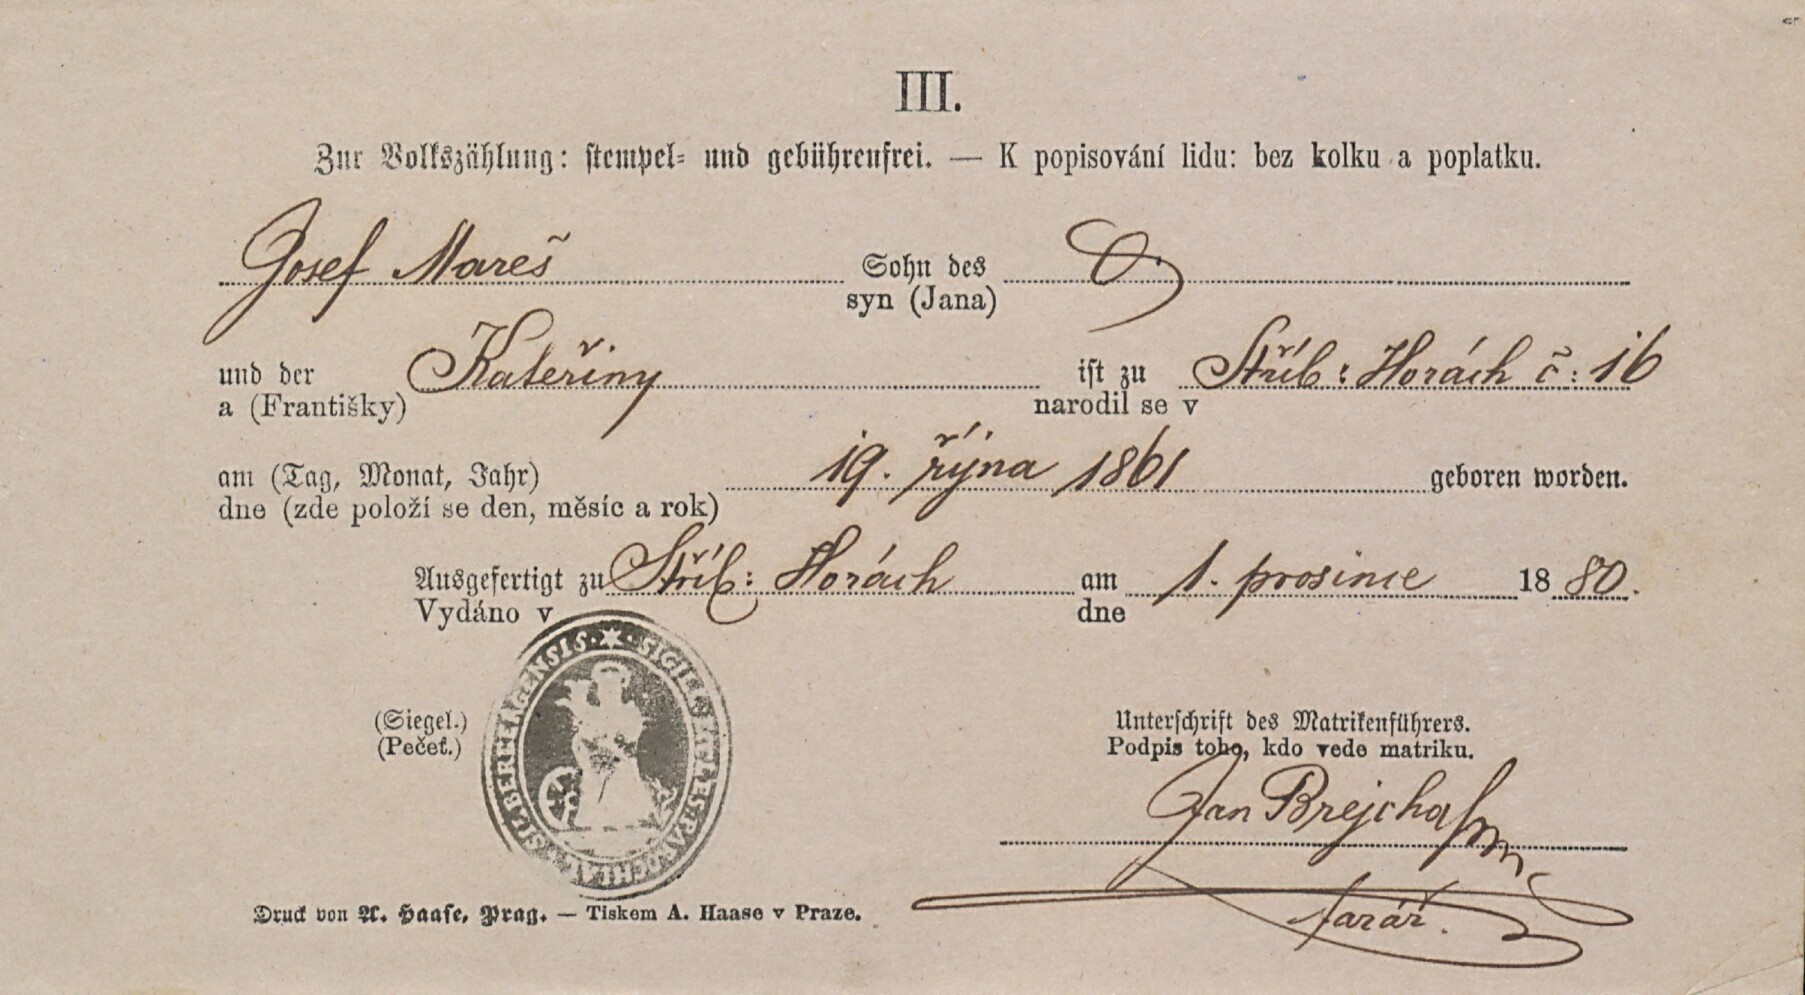 III.
Zur Volkszählung: stempel- und gebührenfrei. — K popisování lidu: bez kolku a poplatku.
Josef Mareš Sohn des
syn (Jana)
und der Kateřiny ist zu Stříb: Horách č: 16
a (Františky) narodil se v
am (Tag, Monat, Jahr) 19. října 1861 geboren worden.
dne (zde položí se den, měsíc a rok)
Ausgefertigt zu Stříb: Horách am 1. prosince 1880.
Vydáno v dne
SIGILL. PAROCHIAE SILBERBERGENSIS
(Siegel.) Unterschrift des Matrikenführers.
(Pečeť.) Podpis toho, kdo vede matriku.
Jan Brejcha
farář.
Druck von A. Haase, Prag. — Tiskem A. Haase v Praze.